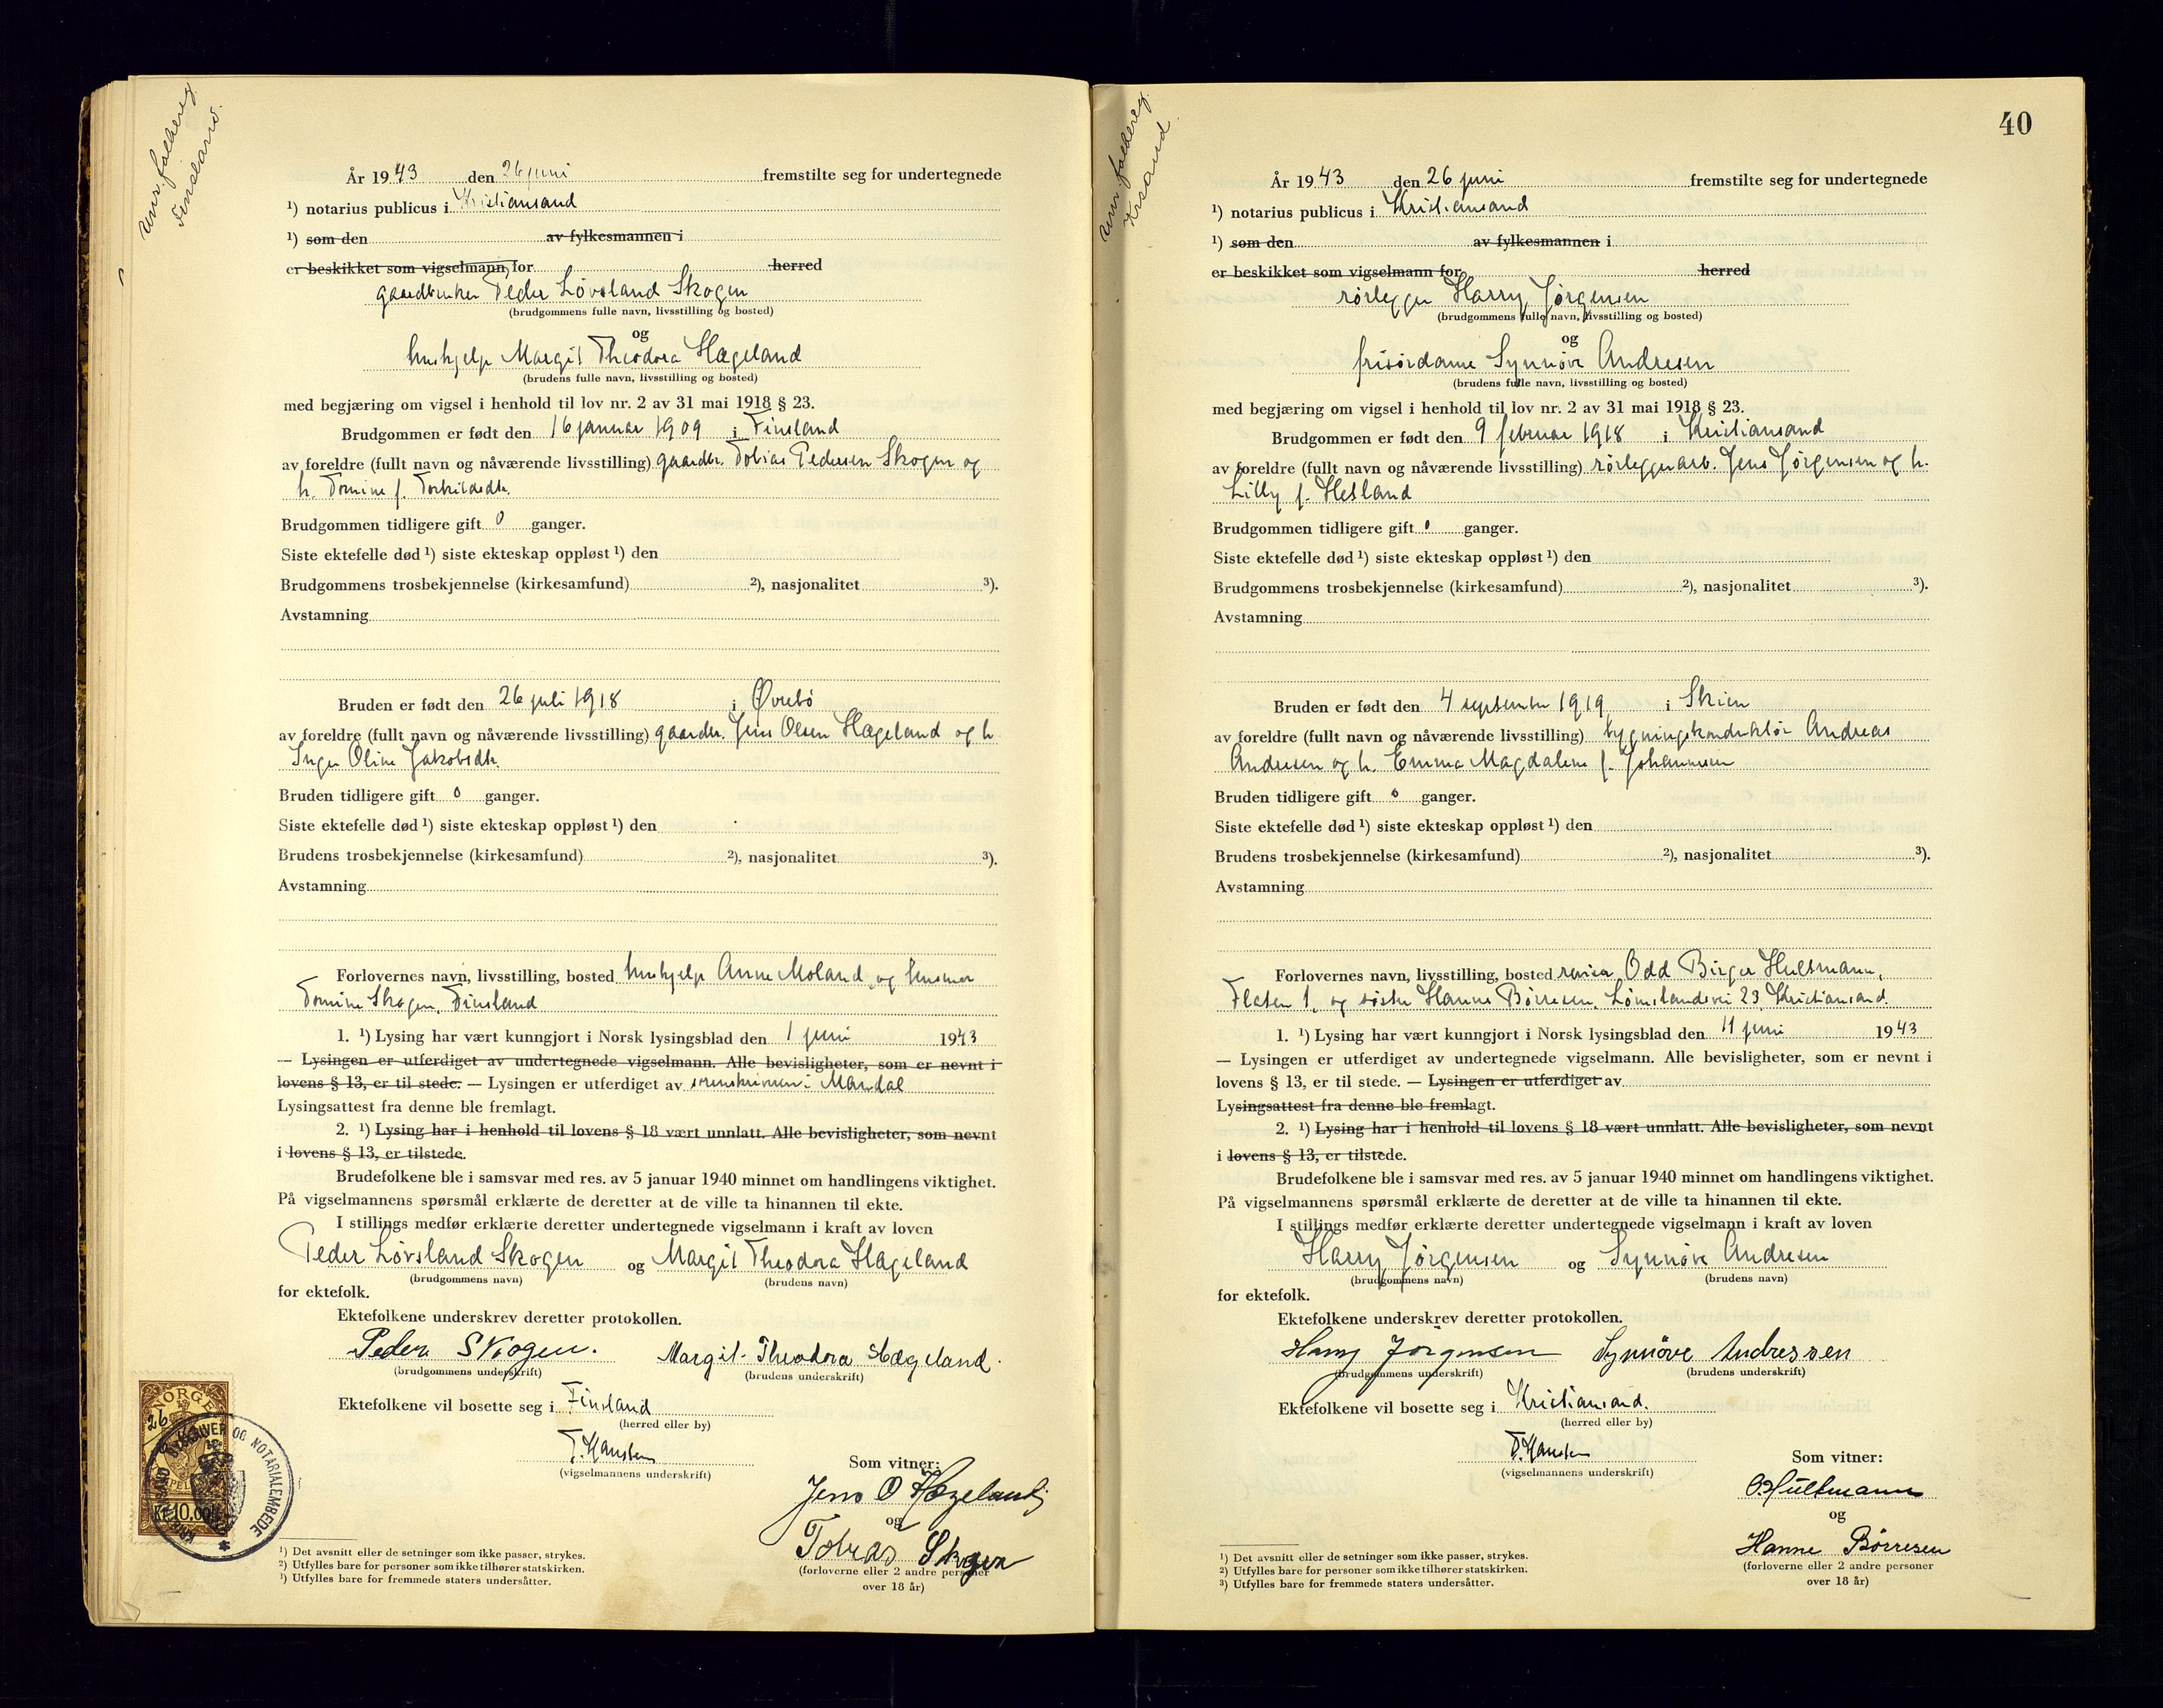 Unr. folkereg.
Finsland.
År 1943 den 26 juni fremstilte seg for undertegnede
¹) notarius publicus i Kristiansand
¹) som den av fylkesmannen i
er beskikket som vigselmann, for herred
gaardbruker Peder Løvsland Skogen
(brudgommens fulle navn, livsstilling og bosted)
og
hushjelp Margit Theodora Hægeland
(brudens fulle navn, livsstilling og bosted)
med begjæring om vigsel i henhold til lov nr. 2 av 31 mai 1918 § 23.
Brudgommen er født den 16 januar 1909 i Finsland
av foreldre (fullt navn og nåværende livsstilling) gaardbr. Tobias Pedersen Skogen og
h. Tomine f. Torkildsdtr.
Brudgommen tidligere gift 0 ganger.
Siste ektefelle død ¹) siste ekteskap oppløst ¹) den
Brudgommens trosbekjennelse (kirkesamfund) ²), nasjonalitet ³).
Avstamning
Bruden er født den 26 juli 1918 i Øvrebø
av foreldre (fullt navn og nåværende livsstilling) gaardbr. Jens Olsen Hægeland og h.
Inger Oline Jakobsdtr.
Bruden tidligere gift 0 ganger.
Siste ektefelle død ¹) siste ekteskap oppløst ¹) den
Brudens trosbekjennelse (kirkesamfund) ²), nasjonalitet ³).
Avstamning
Forlovernes navn, livsstilling, bosted hushjelp Anne Moland og husmor
Tomine Skogen, Finsland
1. ¹) Lysing har vært kunngjort i Norsk lysingsblad den 1 juni 1943
— Lysingen er utferdiget av undertegnede vigselmann. Alle bevisligheter, som er nevnt i
lovens § 13, er til stede. — Lysingen er utferdiget av sorenskriveren i Mandal
Lysingsattest fra denne ble fremlagt.
2. ¹) Lysing har i henhold til lovens § 18 vært unnlatt. Alle bevisligheter, som nevnt
i lovens § 13, er tilstede.
Brudefolkene ble i samsvar med res. av 5 januar 1940 minnet om handlingens viktighet.
På vigselmannens spørsmål erklærte de deretter at de ville ta hinannen til ekte.
I stillings medfør erklærte deretter undertegnede vigselmann i kraft av loven
Peder Løvsland Skogen og Margit Theodora Hægeland
(brudgommens navn) (brudens navn)
for ektefolk.
Ektefolkene underskrev deretter protokollen.
Peder Skogen. Margit Theodora Hægeland.
(brudgommens underskrift) (brudens underskrift)
Ektefolkene vil bosette seg i Finsland
(herred eller by)
T. Hansten
(vigselmannens underskrift)
Som vitner:
Jens O Hægeland
og
Tobias Skogen
(forloverne eller 2 andre personer
over 18 år)
NORGE
26
Kr 10.00
KRISTIANSAND BYSKRIVER OG NOTARIALEMBEDE
¹) Det avsnitt eller de setninger som ikke passer, strykes.
²) Utfylles bare for personer som ikke tilhører statskirken.
³) Utfylles bare for fremmede staters undersåtter.
40
Unr. folkereg.
Krsand.
År 1943 den 26 juni fremstilte seg for undertegnede
¹) notarius publicus i Kristiansand
¹) som den av fylkesmannen i
er beskikket som vigselmann for herred
rørlegger Harry Jørgensen
(brudgommens fulle navn, livsstilling og bosted)
og
frisørdame Synnøve Andresen
(brudens fulle navn, livsstilling og bosted)
med begjæring om vigsel i henhold til lov nr. 2 av 31 mai 1918 § 23.
Brudgommen er født den 9 februar 1918 i Kristiansand
av foreldre (fullt navn og nåværende livsstilling) rørleggerarb. Jens Jørgensen og h.
Lilly f. Helland
Brudgommen tidligere gift 0 ganger.
Siste ektefelle død ¹) siste ekteskap oppløst ¹) den
Brudgommens trosbekjennelse (kirkesamfund) ²), nasjonalitet ³).
Avstamning
Bruden er født den 4 september 1919 i Skien
av foreldre (fullt navn og nåværende livsstilling) bygningskonduktør Andreas
Andresen og h. Emma Magdalene f. Johannesen
Bruden tidligere gift 0 ganger.
Siste ektefelle død ¹) siste ekteskap oppløst ¹) den
Brudens trosbekjennelse (kirkesamfund) ²), nasjonalitet ³).
Avstamning
Forlovernes navn, livsstilling, bosted revisor Odd Birger Hultmann,
Flaten 1, og søster Hanne Børresen, Lømslandsvei 23 Kristiansand.
1. ¹) Lysing har vært kunngjort i Norsk lysingsblad den 11 juni 1943
— Lysingen er utferdiget av undertegnede vigselmann. Alle bevisligheter, som er nevnt i
lovens § 13, er til stede. — Lysingen er utferdiget av
Lysingsattest fra denne ble fremlagt.
2. ¹) Lysing har i henhold til lovens § 18 vært unnlatt. Alle bevisligheter, som nevnt
i lovens § 13, er tilstede.
Brudefolkene ble i samsvar med res. av 5 januar 1940 minnet om handlingens viktighet.
På vigselmannens spørsmål erklærte de deretter at de ville ta hinannen til ekte.
I stillings medfør erklærte deretter undertegnede vigselmann i kraft av loven
Harry Jørgensen og Synnøve Andresen
(brudgommens navn) (brudens navn)
for ektefolk.
Ektefolkene underskrev deretter protokollen.
Harry Jörgensen Synnöve Andressen
(brudgommens underskrift) (brudens underskrift)
Ektefolkene vil bosette seg i Kristiansand.
(herred eller by)
T. Hansten
(vigselmannens underskrift)
Som vitner:
O. Hultmann
og
Hanne Børresen
(forloverne eller 2 andre personer
over 18 år)
¹) Det avsnitt eller de setninger som ikke passer, strykes.
²) Utfylles bare for personer som ikke tilhører statskirken.
³) Utfylles bare for fremmede staters undersåtter.